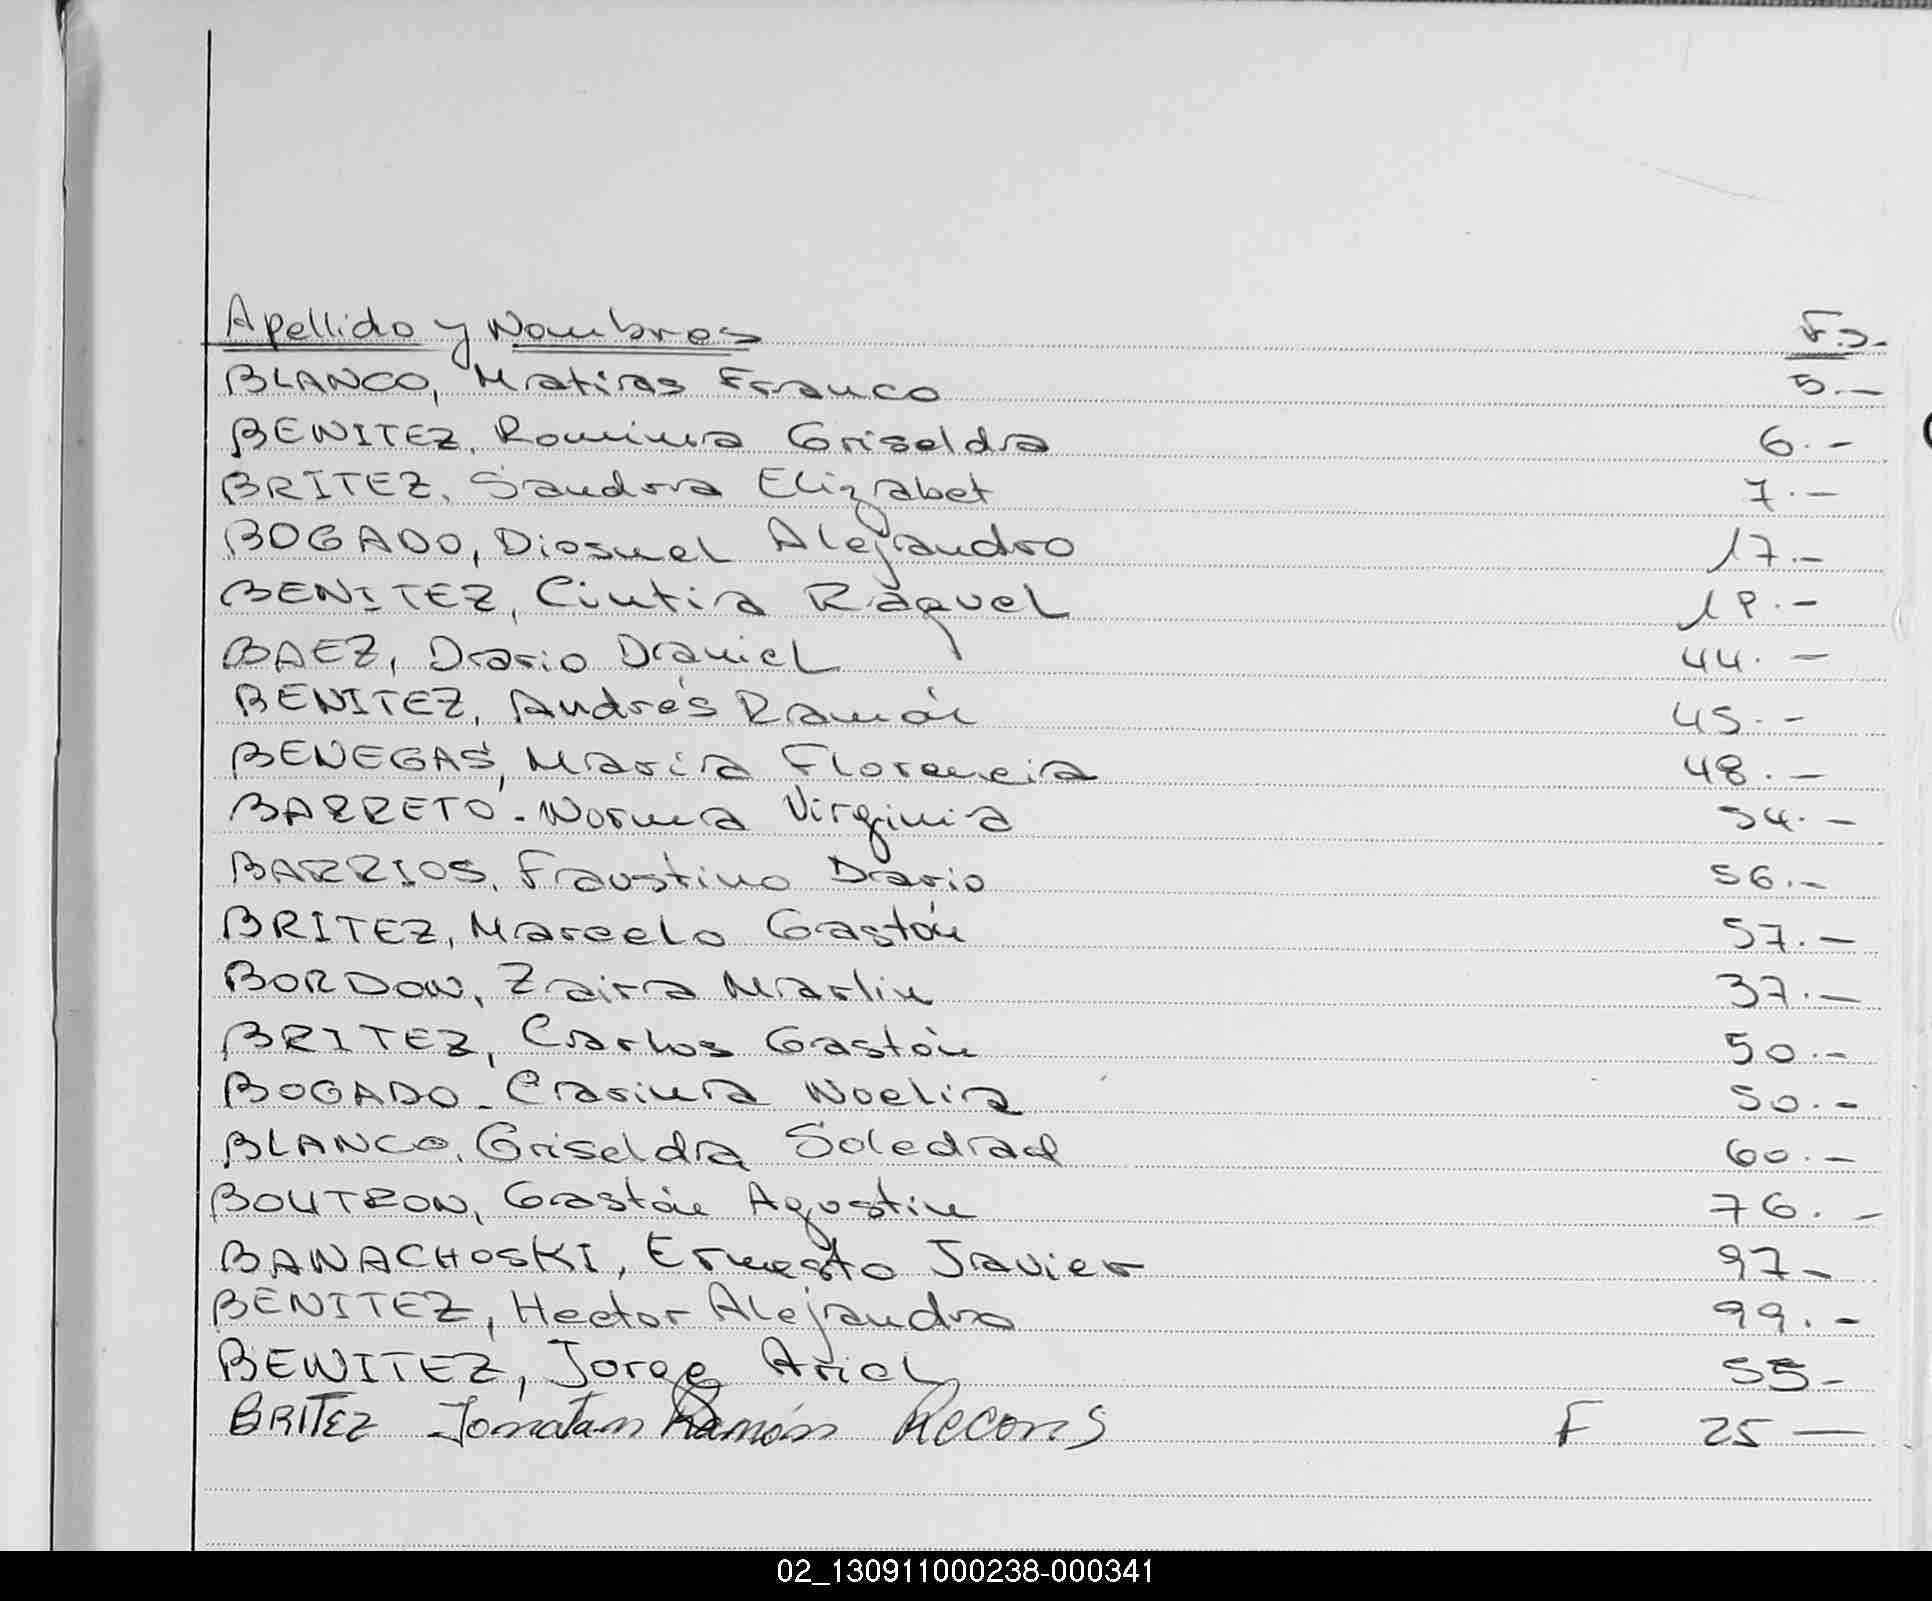 Apellido y Nombres Fs.
BLANCO, Matias Franco 5.-
BENITEZ, Romina Griselda 6.-
BRITEZ, Sandra Elizabet 7.-
BOGADO, Diosnel Alejandro 17.-
BENITEZ, Cintia Raquel 19.-
BAEZ, Dario Daniel 44.-
BENITEZ, Andrés Ramón 45.-
BENEGAS, María Florencia 48.-
BARRETO - Norma Virginia 54.-
BARRIOS, Faustino Dario 56.-
BRITEZ, Marcelo Gastón 57.-
BORDON, Zaira Marlin 37.-
BRITEZ, Carlos Gastón 50.-
BOGADO - Carina Noelia 50.-
BLANCO, Griselda Soledad 60.-
BOUTRON, Gastón Agustin 76.-
BANACHOSKI, Ernesto Javier 97-
BENITEZ, Hector Alejandro 99.-
BENITEZ, Jorge Ariel 55-
BRITEZ Jonatan Ramón Recons F 25 —
02_130911000238-000341